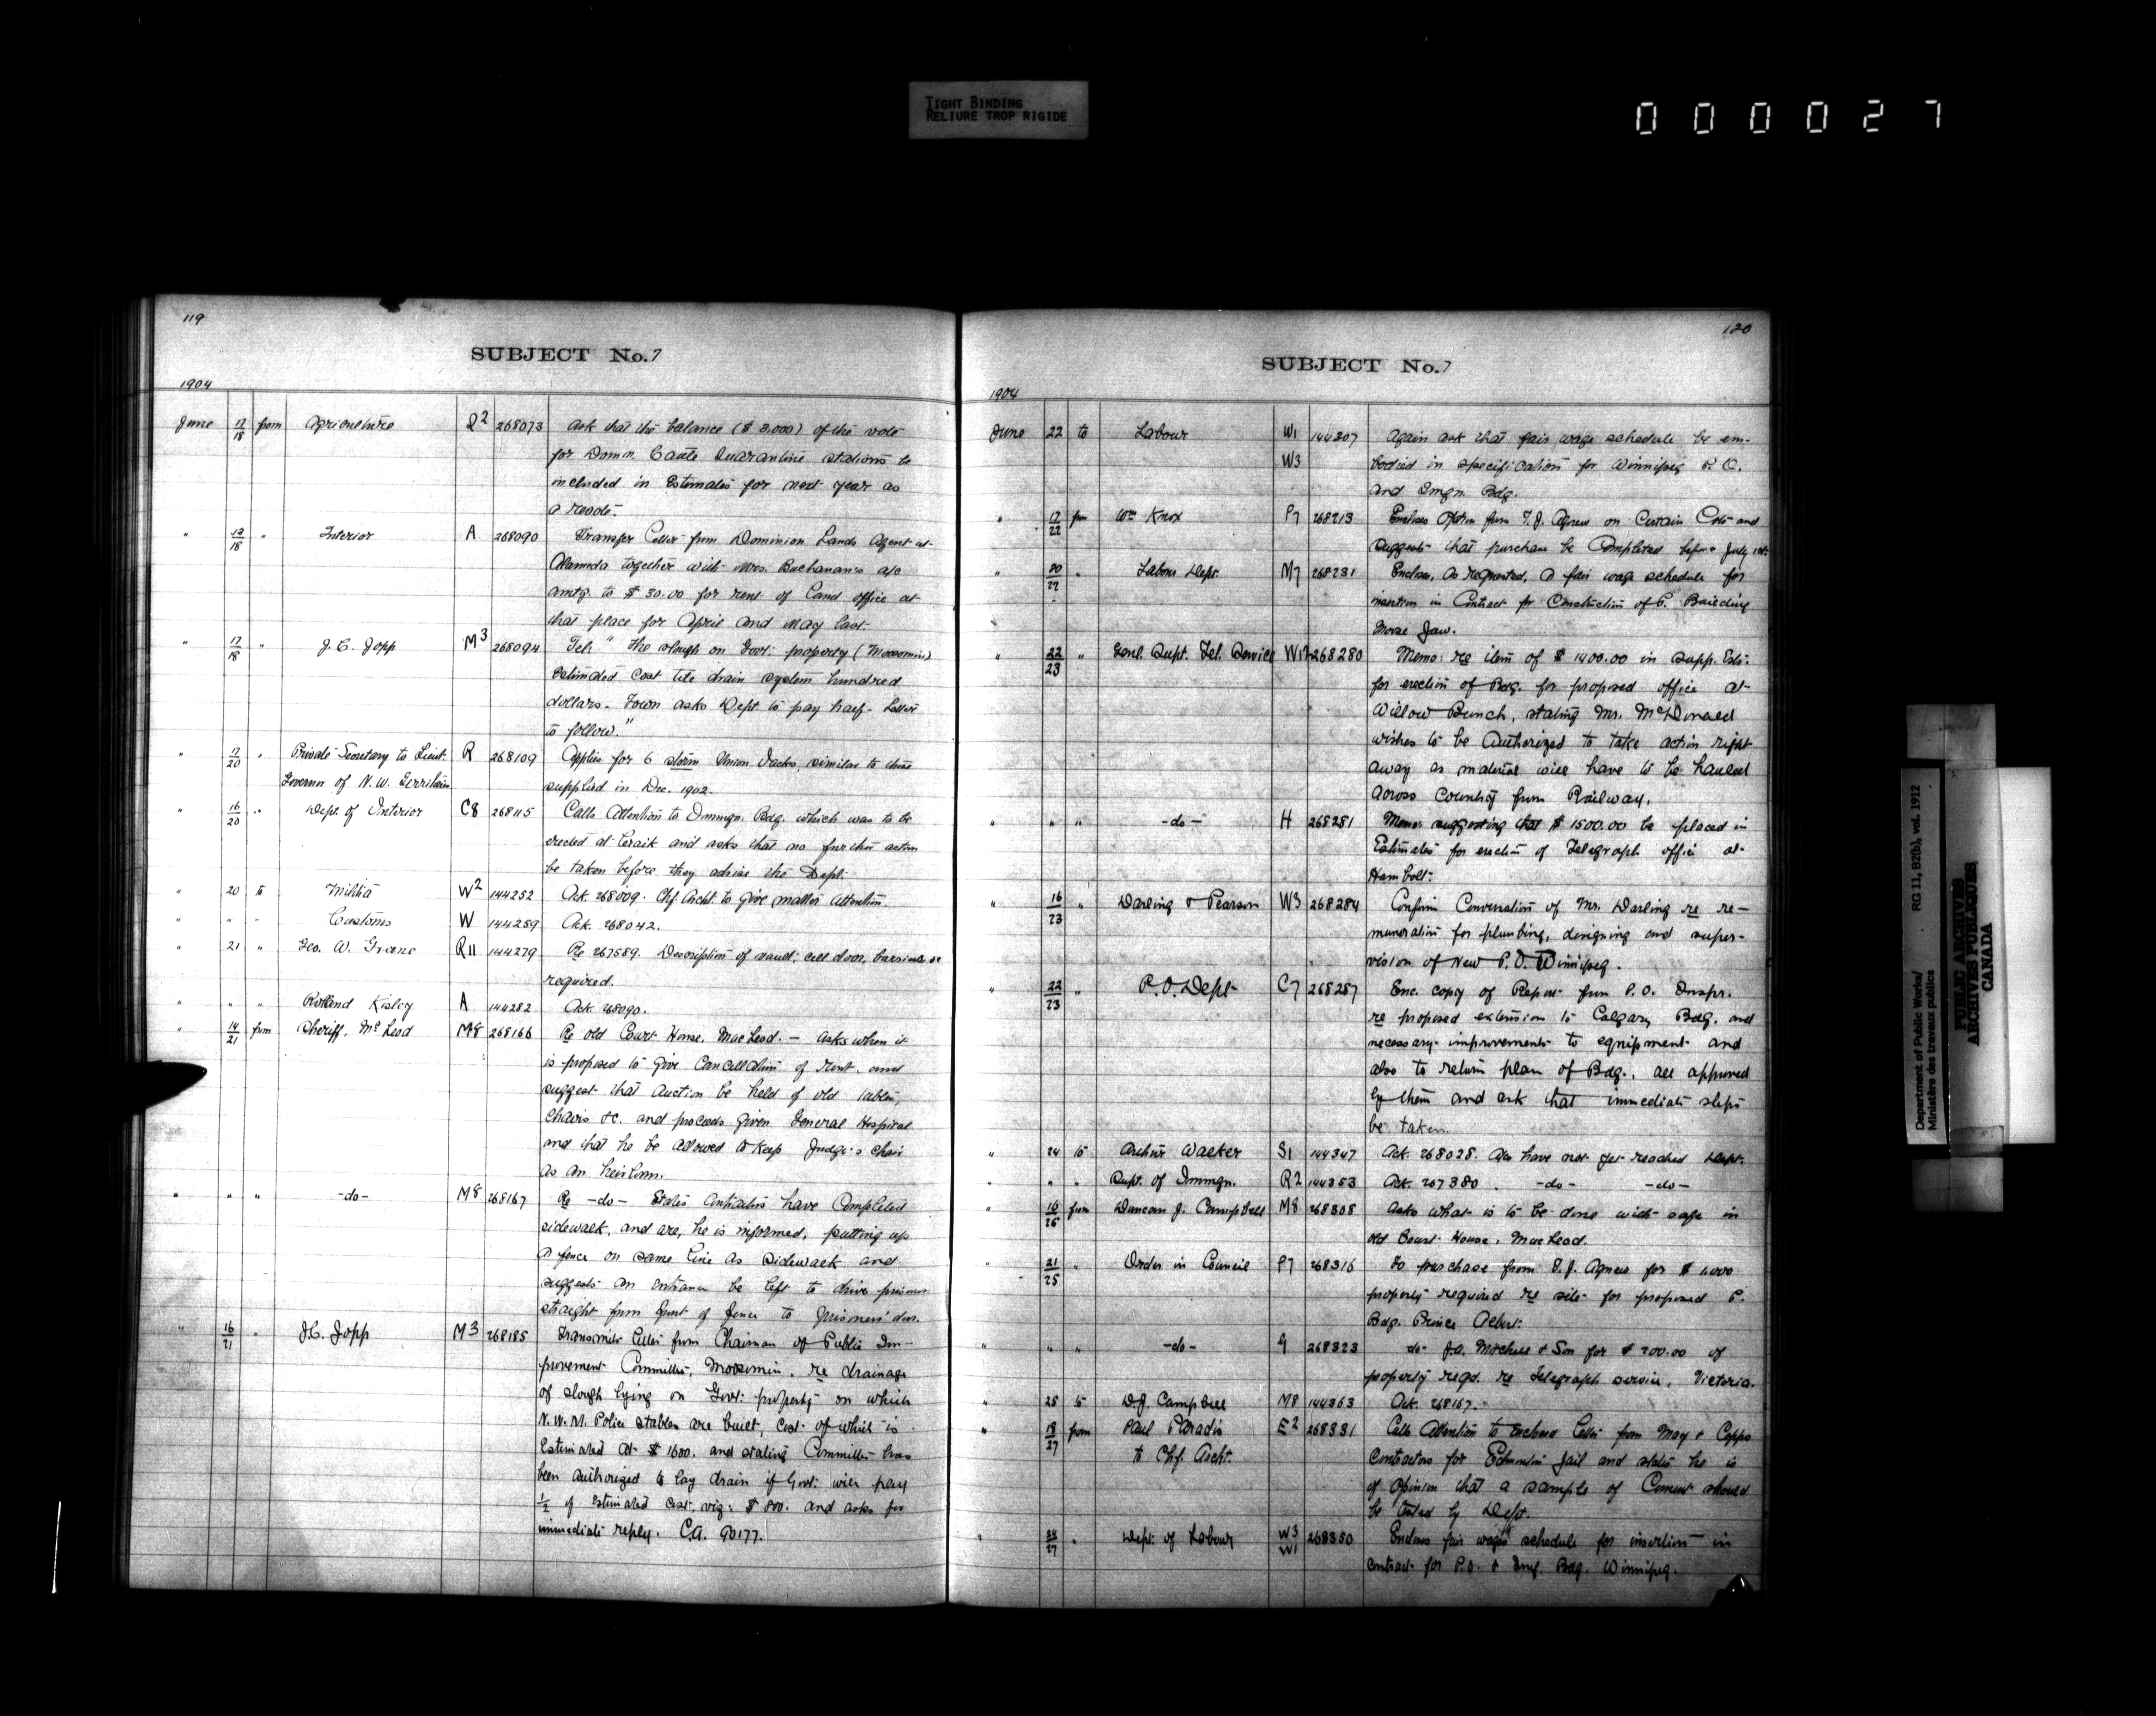 TIGHT BINDING
RELIURE TROP RIGIDE
000027
119
SUBJECT No. 7
1904
June 17/18 from Agriculture R2 268073 Ask that the balance ($3,000) of the vote
for Domn. Cattle Quarantine stations be
included in Estimates for next year as
a revote.
" 13/18 " Interior A 268090 Transfer letter from Dominion Lands Agent at
Alameda together with Mrs. Buchanan's a/c
amtg. to $30.00 for rent of Land office at
that place for April and May last.
" 17/18 " J. C. Jopp M3 268094 Tel. "The slough on Govt: property (Moosomin)
estimated cost tile drain system hundred
dollars. Town asks Dept to pay half. Letter
to follow."
" 17/20 " Private Secretary to Lieut. R 268109 Applies for 6 storm Union Jacks, similar to those
Governor of N.W. Territories supplied in Dec. 1902.
" 16/20 " Dept. of Interior C8 268115 Calls Attention to Immgn. Bdg. which was to be
erected at Craik and asks that no further action
be taken before they advise the Dept.
" 20 to Militia W2 144252 Ack. 268009. Chf. Archt. to give matter attention.
" " " Customs W 144259 Ack. 268042.
" 21 " Geo. W. Greene R11 144279 Re 267589. Description of vault, cell doors, barriers &c
required.
" " " Rolland A 144282 Ack. 268090.
" 14/21 from Sheriff, McLeod M8 268166 Re old Court House, MacLeod. — Asks when it
is proposed to give Cancellation of rent, and
suggest that Auction be held of old tables,
Chairs &c. and proceeds given General Hospital
and that he be allowed to keep Judge's chair
as an heirloom.
" " " -do- M8 268167 Re -do- States Contractors have Completed
sidewalk, and are, he is informed, putting up
a fence on same line as sidewalk and
suggests an entrance be left to drive prisoners
straight from front of fence to prisoners' door.
" 16/21 " J.C. Jopp M3 268185 Transmits letter from Chairman of Public Im-
provement Committee, Moosomin, re drainage
of slough lying on Govt: property on which
N.W.M. Police stables are built, cost of which is
Estimated at $1600. and stating Committee has
been authorized to lay drain if Govt: will pay
1/2 of estimated cost, viz: $800. and asks for
immediate reply. C.A. 90177.
120
SUBJECT No. 7
1904
June 22 to Labour W1 144307 Again ask that fair wage schedule be em-
W3 bodied in specification for Winnipeg P.O.
and Imgn. Bdg.
" 17/22 fm Wm Knox P7 268213 Encloses Option from T. J. Agnew on Certain Lots and
suggests that purchase be Completed before July 1st.
" 20/22 " Labour Dept. M7 268231 Encloses, as requested, a fair wage schedule for
insertion in Contract for Construction of P. Building
Moose Jaw.
" 22/23 " Genl. Supt. Tel. Service W12 268280 Memo: re item of $1400.00 in Supp. Ests:
for erection of Bdg. for proposed office at
Willow Bunch, stating Mr. McDonald
wishes to be Authorized to take action right
away as material will have to be hauled
across Country from Railway.
" " " -do- H 268281 Memo: suggesting that $1500.00 be placed in
Estimates for erection of Telegraph office at
Humbolt.
" 16/23 " Darling & Pearson W3 268284 Confirm Conversation of Mr. Darling re re-
muneration for plumbing, designing and super-
vision of New P.O. Winnipeg.
" 22/23 " P.O. Dept C7 268287 Enc. copy of Report from P.O. Inspr.
re proposed extension to Calgary Bdg. and
necessary improvements to equipment and
also to return plan of Bdg., all approved
by them and ask that immediate steps
be taken.
" 24 to Arthur Walker S1 144347 Ack. 268028. have not yet reached Dept.
" " " Supt. of Immgn. R2 144353 Ack. 267380. -do- -do-
" 16/25 from Duncan J. Campbell M8 268308 Asks what is to be done with safe in
old Court House, MacLeod.
" 21/25 " Order in Council P7 268316 To purchase from T. J. Agnew for $
property required re site for proposed P.
Bdg. Prince Albert.
" " " -do- G 268323 do- J.A. Mitchell & Son for $200.00 of
property reqd. re Telegraph service, Victoria.
" 25 to D.J. Campbell M8 144363 Ack. 268167.
" 18/27 from Paul Paradis E2 268331 Calls Attention to enclosed letter from May &
to Chf. Archt. Contractors for Edmonton Jail and states he is
of opinion that a sample of Cement should
be tested by Dept.
" 24/27 " Dept. of Labour W3 268350 Encloses fair wages schedule for insertion in
W1 contract for P.O. & Img. Bdg. Winnipeg.
Department of Public Works/ RG 11, B2(b), vol. 1912
Ministère des travaux publics
PUBLIC ARCHIVES
ARCHIVES PUBLIQUES
CANADA